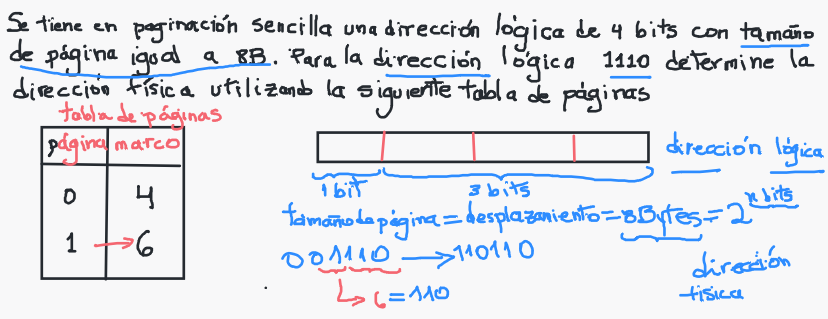 Se tiene en paginación sencilla una dirección lógica de 4 bits con tamaño
de página igual a 8B. Para la dirección lógica 1110 determine la
dirección física utilizando la siguiente tabla de páginas
tabla de páginas
página marco
0 4
1 → 6
dirección lógica
1 bit 3 bits
tamaño de página = desplazamiento = 8Bytes = 2^n bits
001110 → 110110
6 = 110
dirección
física